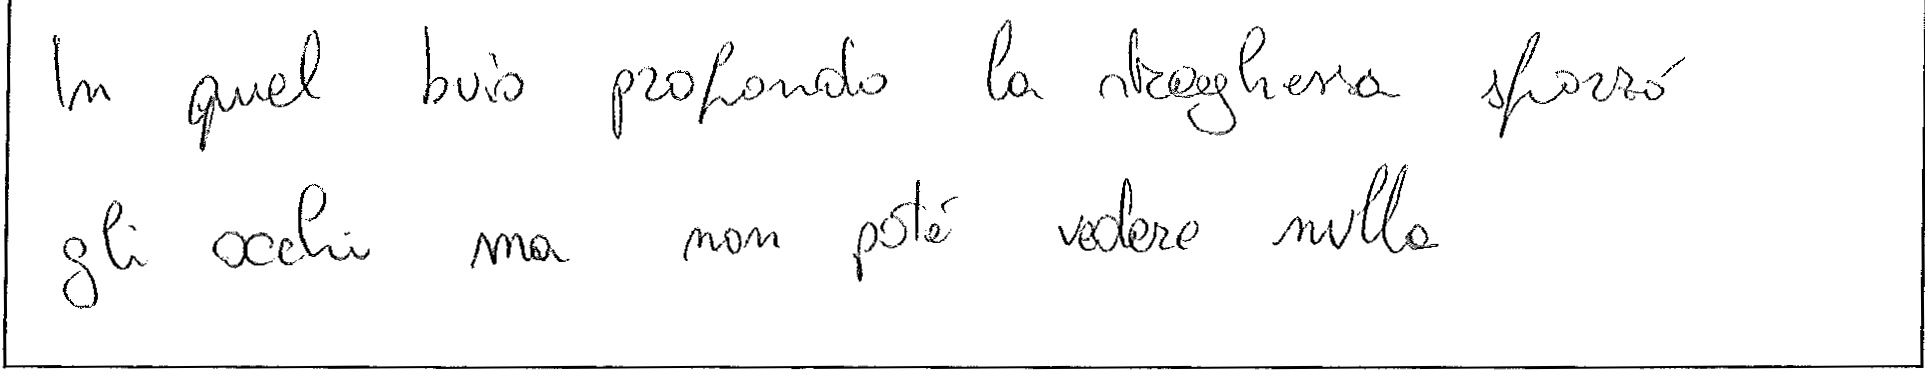 In quel buio profondo la sforzó
gli occhi ma non poté vedere nulla